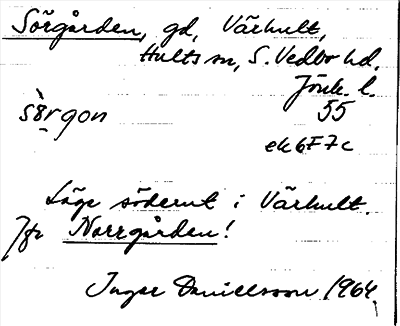 Sörgården, gd, Värhult,
Hults sn, S. Vedbo hd.
Jönk. l.
sö̀rgon 55
ek 6F7c
Låge söderut i Värhult.
Jfr Norrgården!
Ingar Danielsson 1964.